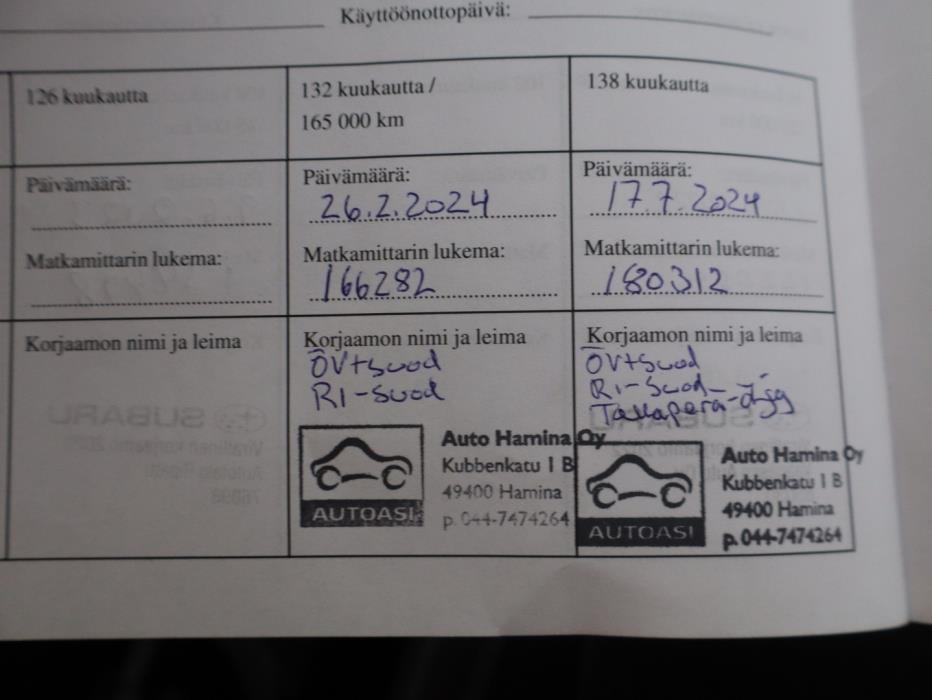 Käyttöönottopäivä:
126 kuukautta
Päivämäärä:
Matkamittarin lukema:
Korjaamon nimi ja leima
132 kuukautta /
165 000 km
Päivämäärä:
26.2.2024
Matkamittarin lukema:
166282
Korjaamon nimi ja leima
ÖV+suod
RI-suod
AUTOASI
Auto Hamina Oy
Kubbenkatu 1 B
49400 Hamina
p. 044-7474264
138 kuukautta
Päivämäärä:
17.7.2024
Matkamittarin lukema:
180312
Korjaamon nimi ja leima
ÖV+suod
RI-suod
AUTOASI
Auto Hamina Oy
Kubbenkatu 1 B
49400 Hamina
p. 044-7474264
SUBARU